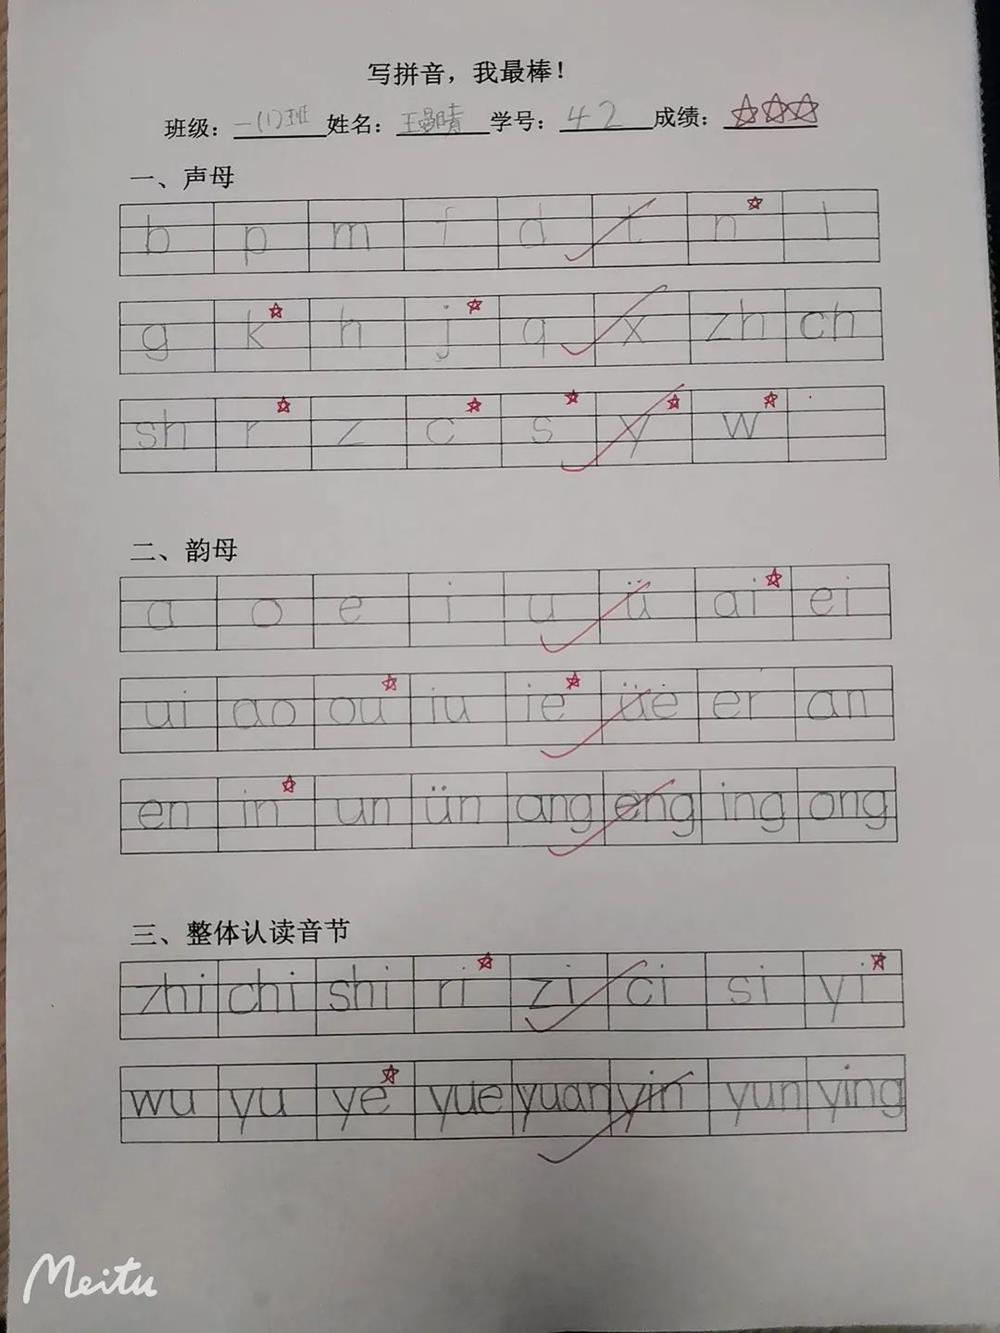 写拼音，我最棒！
班级：一(1)班 姓名：王晴 学号：42 成绩：
一、声母
b p m f d t n l
g k h j q x zh ch
sh r z c s y w
二、韵母
a o e i u ü ai ei
ui ao ou iu ie üe er an
en in un ün ang eng ing ong
三、整体认读音节
zhi chi shi ri zi ci si yi
wu yu ye yue yuan yin yun ying
Meitu